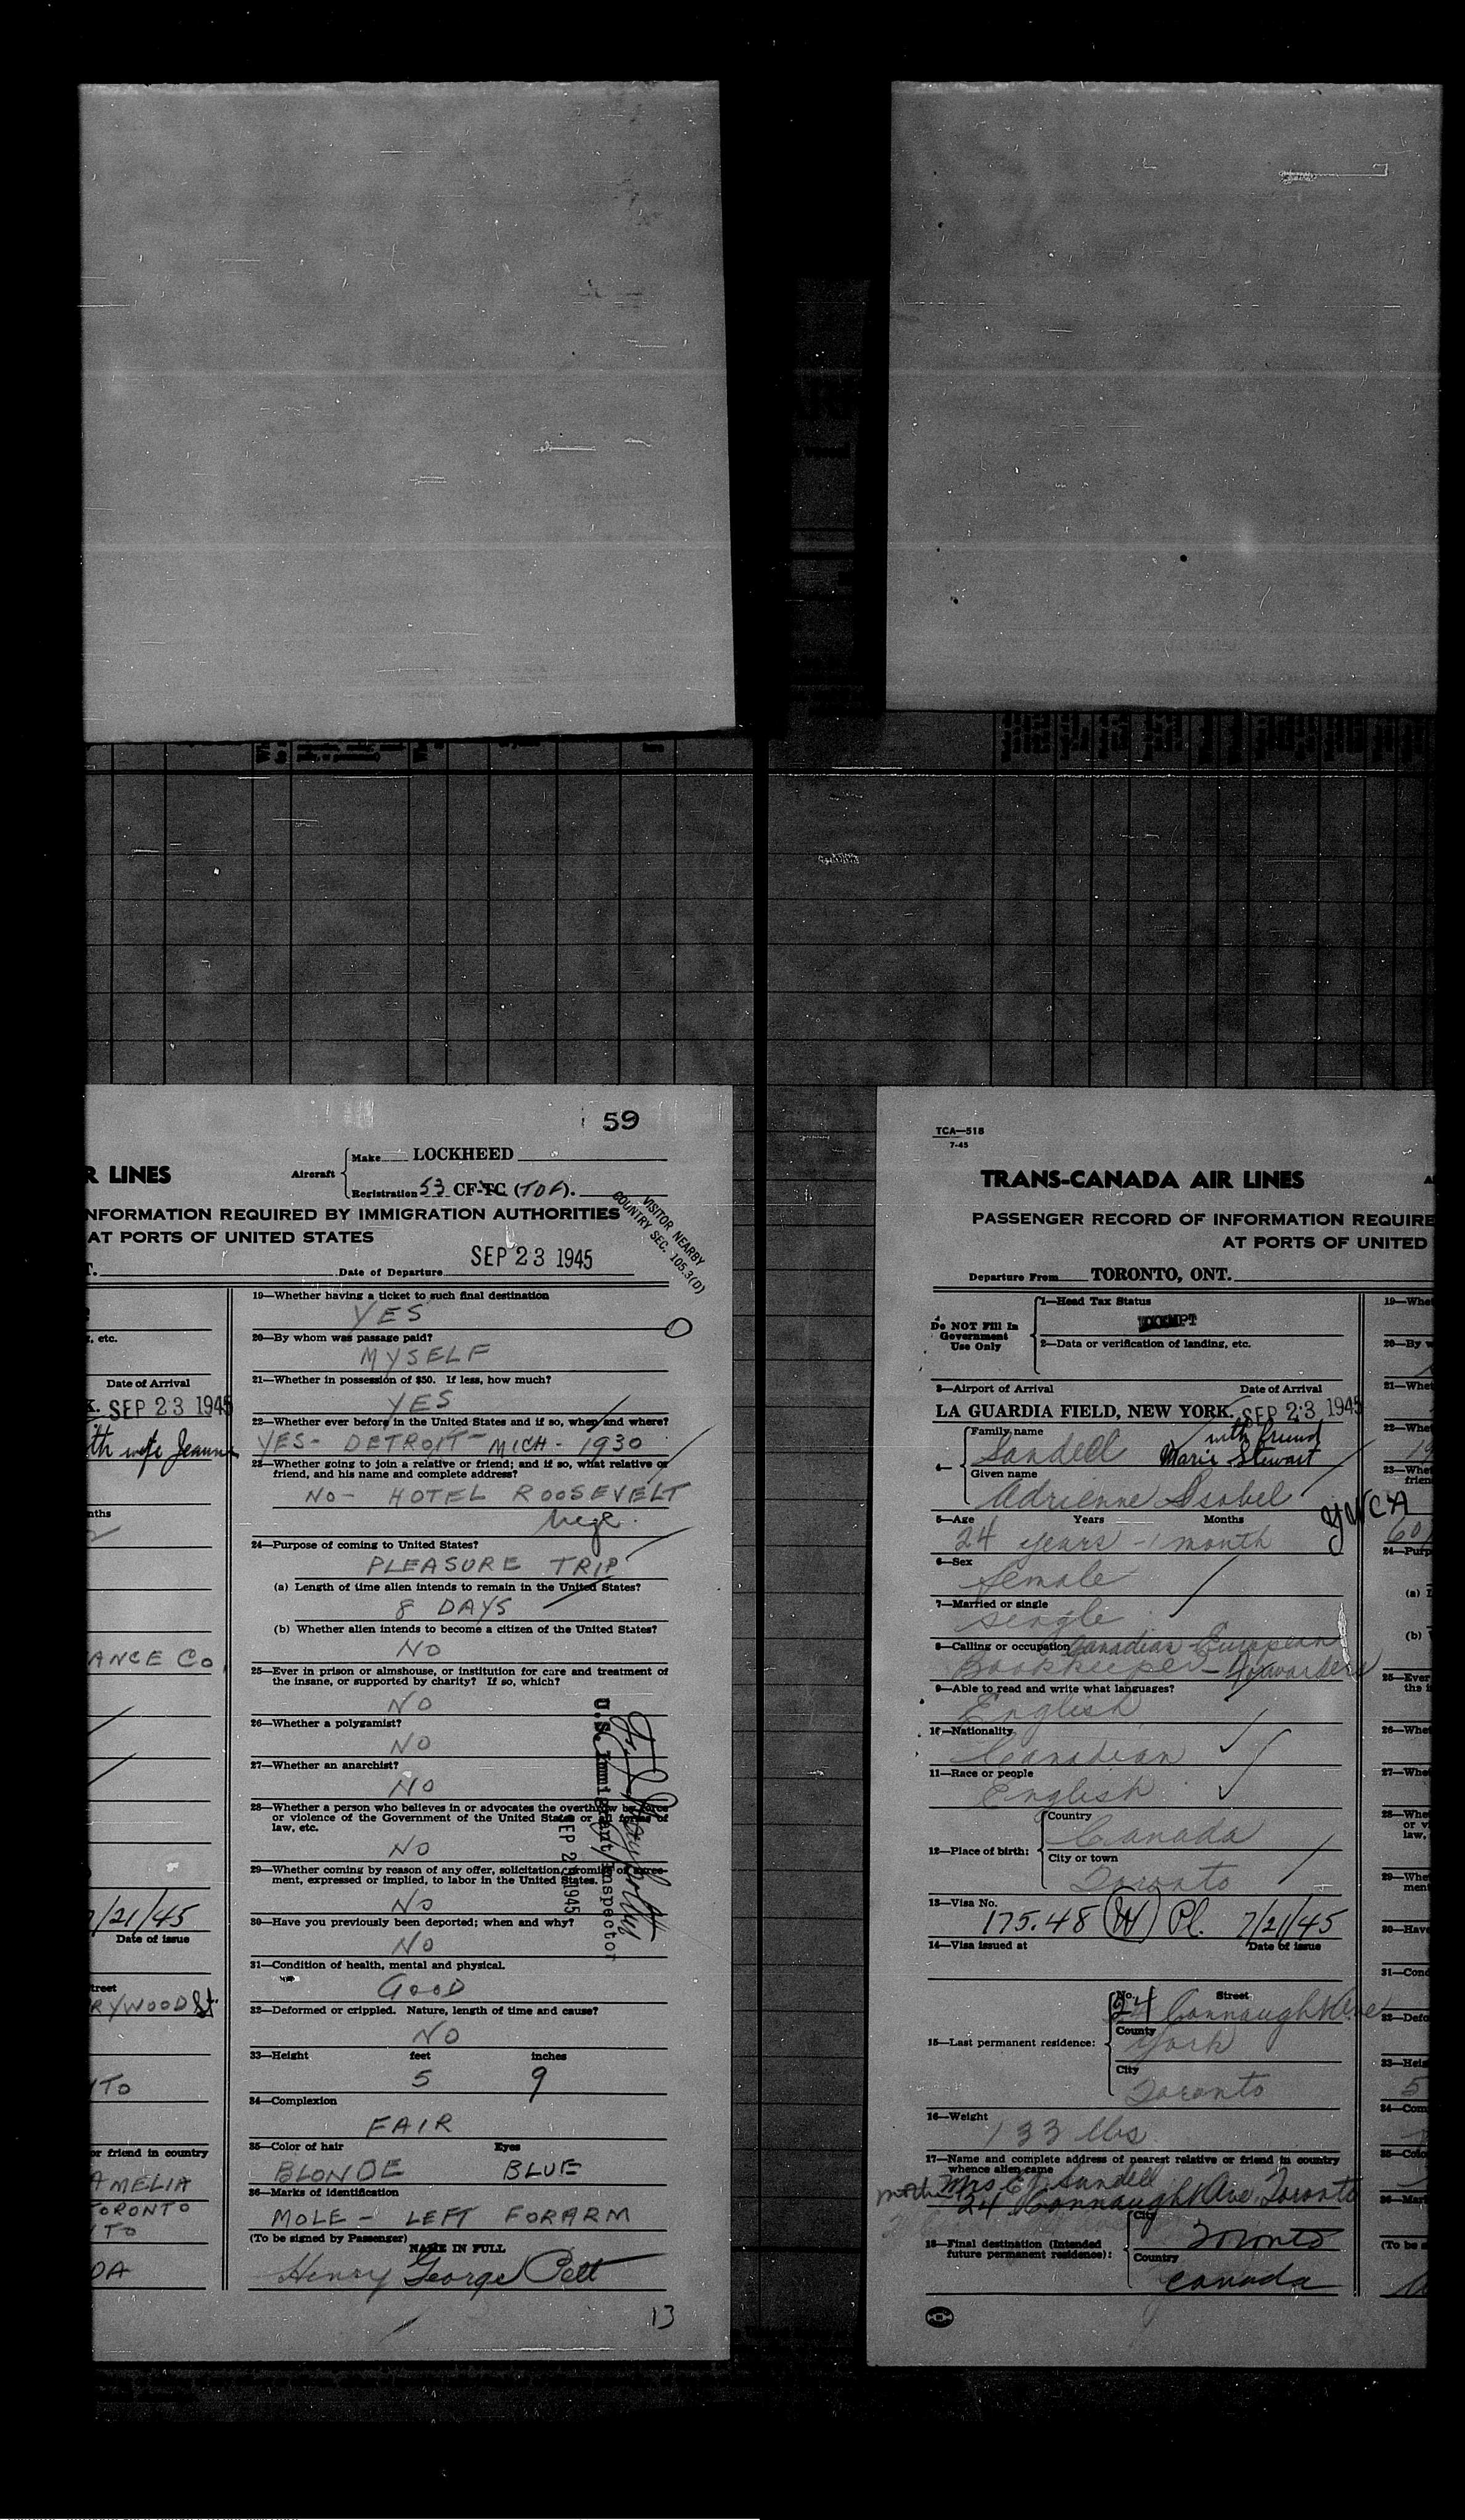 59
R LINES
Aircraft
Make LOCKHEED
Registration 53 CF-TC (TOF).
VISITOR NEARBY
COUNTRY SEC. 105.3(D)
NFORMATION REQUIRED BY IMMIGRATION AUTHORITIES
AT PORTS OF UNITED STATES
T. Date of Departure SEP 23 1945
, etc.
Date of Arrival
K. SEP 23 1945
ith wife Jeanne
nths
ANCE CO.
/21/45
Date of issue
treet
RYWOOD St.
TO
or friend in country
AMELIA
TORONTO
TO
DA
19—Whether having a ticket to such final destination
YES
20—By whom was passage paid?
MYSELF
21—Whether in possession of $50. If less, how much?
YES
22—Whether ever before in the United States and if so, when and where?
YES- DETROIT - MICH - 1930
23—Whether going to join a relative or friend; and if so, what relative or
friend, and his name and complete address?
NO - HOTEL ROOSEVELT
24—Purpose of coming to United States?
PLEASURE TRIP
(a) Length of time alien intends to remain in the United States?
8 DAYS
(b) Whether alien intends to become a citizen of the United States?
NO
25—Ever in prison or almshouse, or institution for care and treatment of
the insane, or supported by charity? If so, which?
NO
26—Whether a polygamist?
NO
27—Whether an anarchist?
NO
28—Whether a person who believes in or advocates the overthrow by force
or violence of the Government of the United States or all forms of
law, etc.
NO
29—Whether coming by reason of any offer, solicitation, promise or agree-
ment, expressed or implied, to labor in the United States.
NO
30—Have you previously been deported; when and why?
NO
U.S. Immigrant Inspector
31—Condition of health, mental and physical.
GOOD
32—Deformed or crippled. Nature, length of time and cause?
NO
33—Height feet inches
5 9
34—Complexion
FAIR
35—Color of hair Eyes
BLONDE BLUE
36—Marks of identification
MOLE - LEFT FORARM
(To be signed by Passenger)
NAME IN FULL
Henry George Pett
13
TCA—518
7-45
TRANS-CANADA AIR LINES
PASSENGER RECORD OF INFORMATION REQUIRE
AT PORTS OF UNITED
Departure From TORONTO, ONT.
Do NOT Fill In
Government
Use Only
1—Head Tax Status
EXEMPT
2—Data or verification of landing, etc.
3—Airport of Arrival Date of Arrival
LA GUARDIA FIELD, NEW YORK. SEP 23 1945
4—
Family name with friend
Sandell Marie Stewart
Given name
Adrienne Isobel
YWCA
5—Age Years Months
24 years - 1 month
6—Sex
female
7—Married or single
single
8—Calling or occupation Canadian European
Bookkeeper - Forwarders
9—Able to read and write what languages?
English
10—Nationality
Canadian
11—Race or people
English
12—Place of birth:
Country
Canada
City or town
Toronto
13—Visa No.
175.48 (W) Pl. 7/21/45
14—Visa issued at Date of issue
15—Last permanent residence:
No. Street
24 Connaught Ave
County
York
City
Toronto
16—Weight
133 lbs
17—Name and complete address of nearest relative or friend in country
whence alien came
mother Mrs E. Sandell
24 Connaught Ave. Toronto
18—Final destination (Intended
future permanent residence):
City
Toronto
Country
Canada
19—Whe
20—By w
21—Whet
22—Whe
19
23—Whe
frien
60
24—Purp
(a) I
(b)
25—Ever
the i
26—Whe
27—Whe
28—Whe
or vi
law,
29—Whe
ment
30—Have
31—Cond
32—Defo
33—Heig
5
34—Com
35—Colo
36—Mar
(To be s